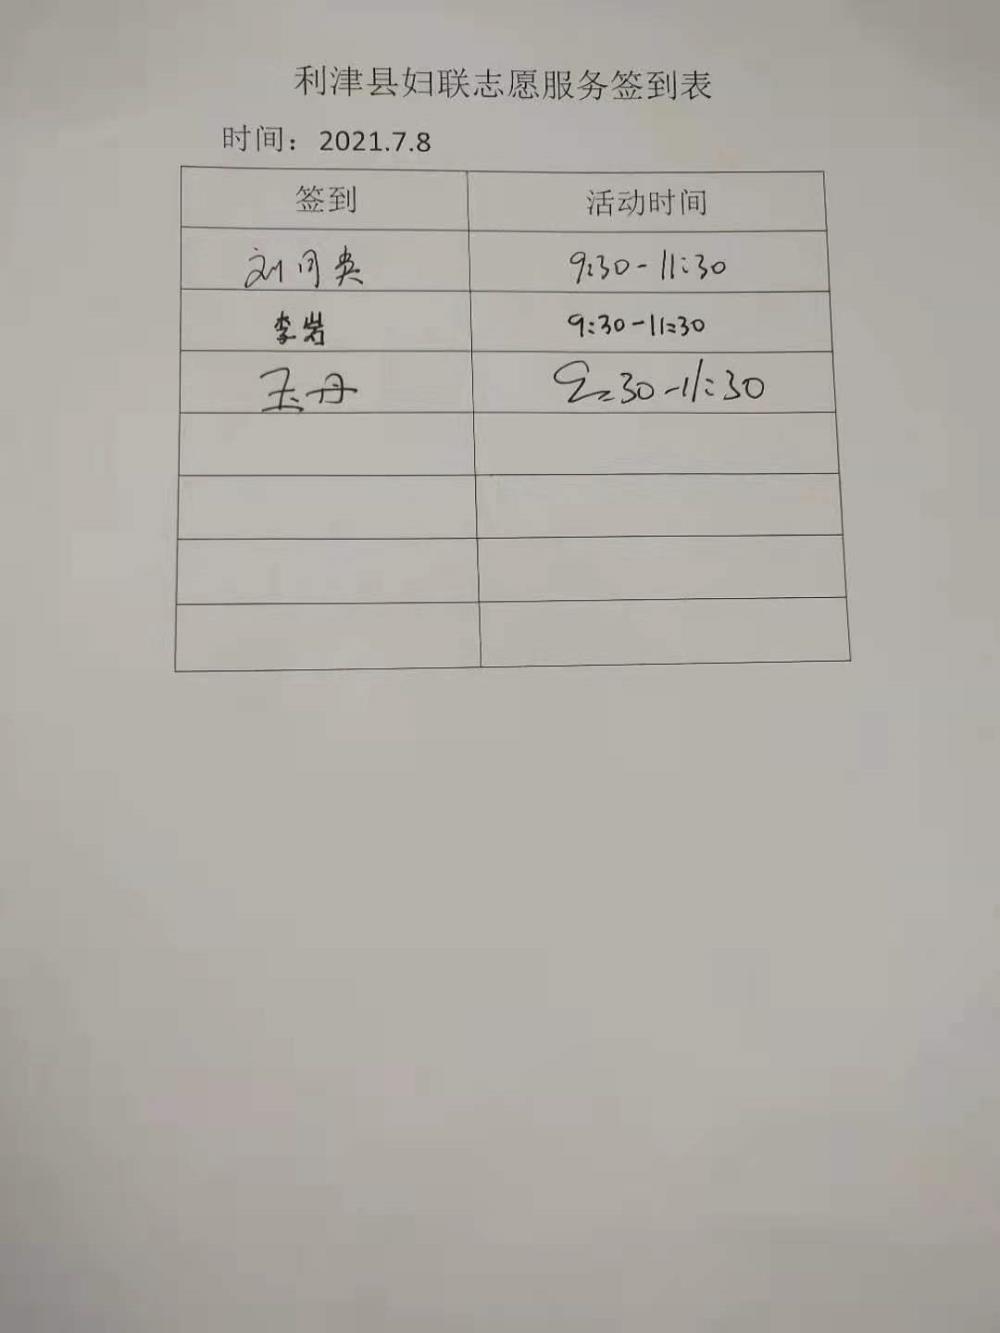 利津县妇联志愿服务签到表
时间：2021.7.8
签到 活动时间
刘同英 9:30-11:30
李岩 9:30-11:30
玉丹 9:30-11:30